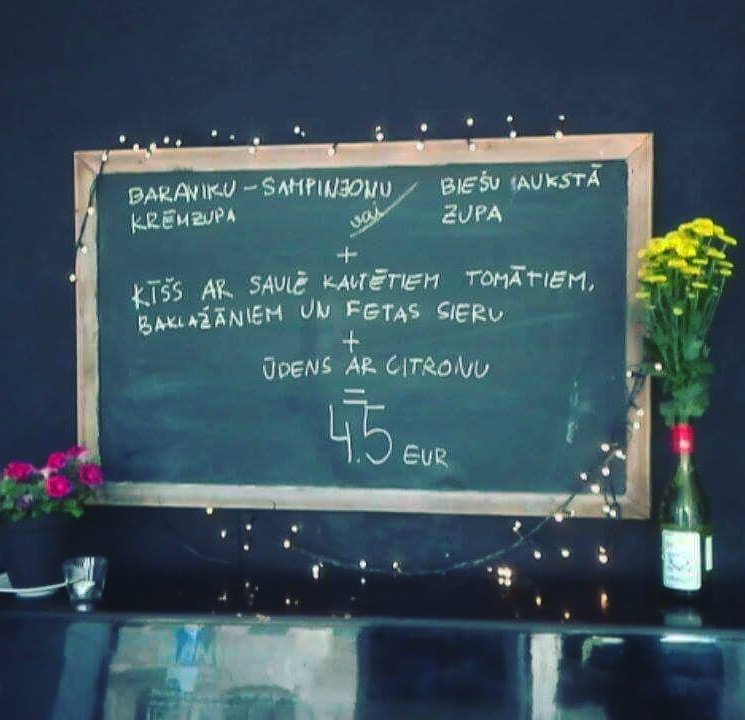 BARAVIKU - ŠAMPINJONU
KRĒMZUPA
vai
BIEŠU AUKSTĀ
ZUPA
+
ĶĪŠS AR SAULĒ KALTĒTIEM TOMĀTIEM,
BAKLAŽĀNIEM UN FETAS SIERU
+
ŪDENS AR CITRONU
=
4.5 EUR